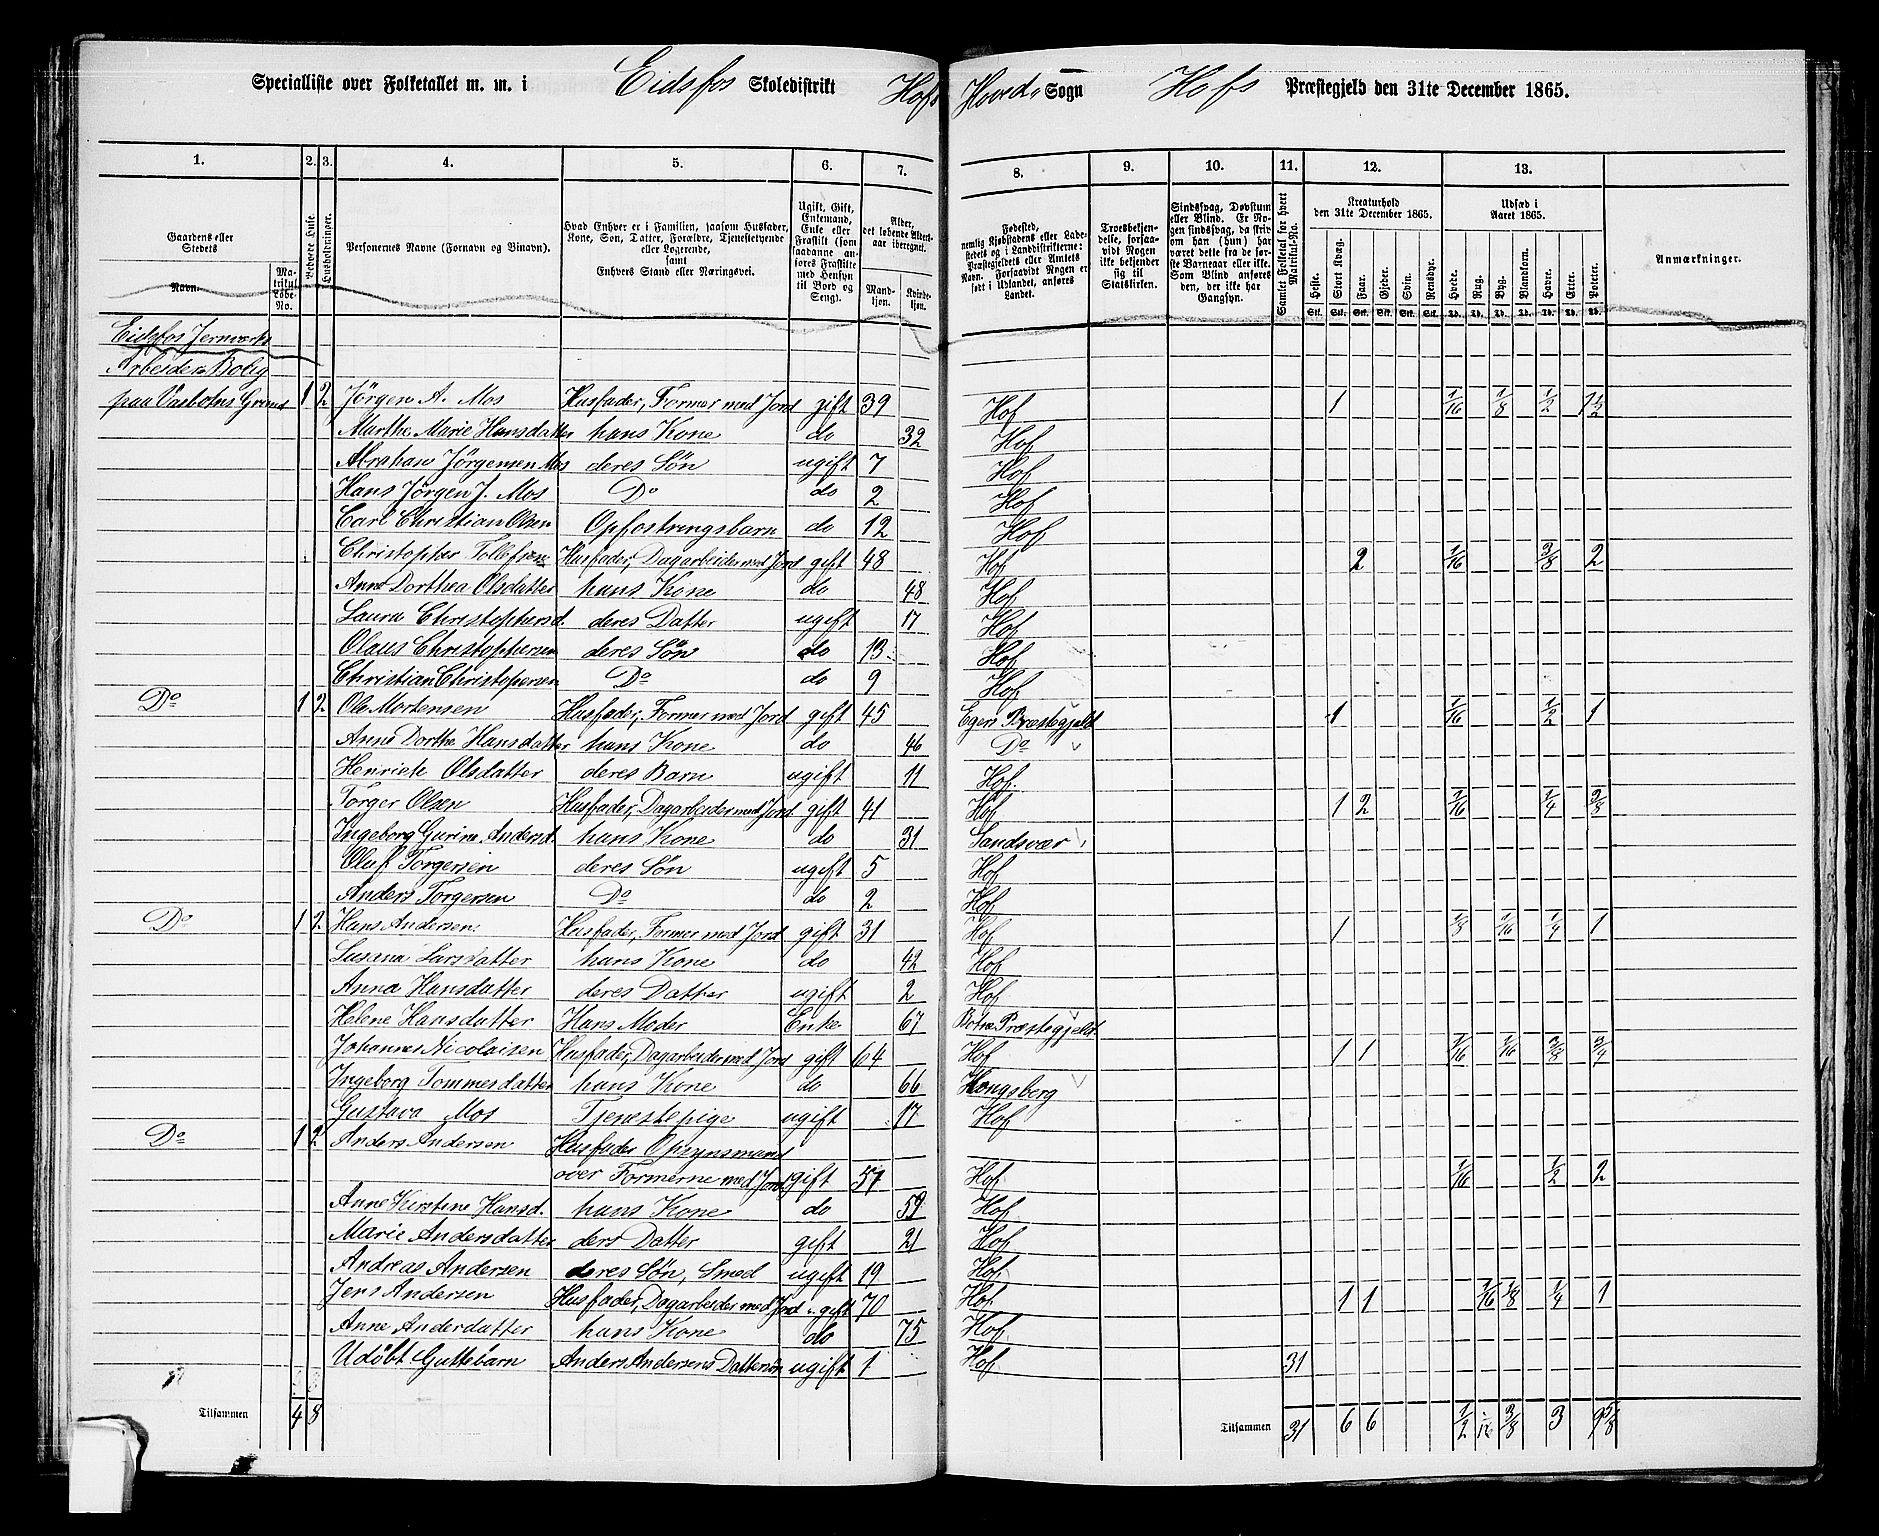 Specialliste over Folketallet m. m. i Eidsfos Skoledistrikt Hofs Hoved Sogn Hofs Præstegjeld den 31te December 1865.
1. 2. 3. 4. 5. 6. 7. 8. 9. 10. 11. 12. 13.
Gaardens eller Stedets
Navn.
Matrikul Løbe-No.
Beboede Huse.
Husholdninger.
Personernes Navne (Fornavn og Binavn).
Hvad Enhver er i Familien, saasom Husfader, Kone, Søn, Datter, Forældre, Tjenestetyende eller Logerende, samt Enhvers Stand eller Næringsvei.
Ugift, Gift, Enkemand, Enke eller Fraskilt (som saadanne anføres Fraskilte med Hensyn til Bord og Seng).
Alder, det løbende Aldersaar iberegnet.
Mandkjøn.
Kvindekjøn.
Fødested, nemlig Kjøbstadens eller Ladestedets og i Landdistrikterne: Præstegjeldets eller Amtets Navn. Forsaavidt Nogen er født i Udlandet, anføres Landet.
Troesbekjendelse, forsaavidt Nogen ikke bekjender sig til Statskirken.
Sindssvag, Døvstum eller Blind. Er Nogen sindssvag, da skrives om han (hun) har været dette fra de første Barneaar eller ikke. Som Blind anføres den, der ikke har Gangsyn.
Samlet Folketal for hvert Matrikul-No.
Kreaturhold den 31te December 1865.
Heste. Stort Kvæg. Faar. Gjeder. Svin. Rensdyr.
Udsæd i Aaret 1865.
Hvede. Rug. Byg. Blandkorn. Havre. Erter. Poteter.
Anmærkninger.
Eidsfos Jernværks
Arbeider Bolig
paa Vasbotns Grund 1 2 Jörgen A. Mos Husfader, Former med Jord gift 39 Hof 1 1/16 1/8 1/2 1 1/2
Marthe Marie Hansdatter hans Kone do 32 Hof
Abraham Jörgensen Mos deres Søn ugift 7 Hof
Hans Jørgen J. Mos Do do 2 Hof
Carl Christian Olsen Opfostringsbarn do 12 Hof
Christopher Tollefsen Husfader, Dagarbeider med Jord gift 48 Hof 2 1/16 3/8 2
Anne Dorthea Olsdatter hans Kone do 48 Hof
Laura Christophersd. deres Datter ugift 17 Hof
Olaus Christophersen deres Søn do 13 Hof
Christian Christophersen Do do 9 Hof
Do 1 2 Ole Mortensen Husfader, Former med Jord gift 45 Egers Præstegjeld 1 1/16 1/2 1
Anne Dorthe Hansdatter hans Kone do 46 Do
Henriete Olsdatter deres Barn ugift 11 Hof
Torger Olsen Husfader, Dagarbeider med Jord gift 41 Hof 1 2 1/16 1/4 3/8
Ingeborg Gurine Andersd. hans Kone do 31 Sandsvær
Oluf Torgersen deres Søn ugift 5 Hof
Anders Torgersen Do do 2 Hof
Do 1 2 Hans Andersen Husfader, Former med Jord gift 31 Hof 1 1/8 1/16 1/4 1
Susana Larsdatter hans Kone do 42 Hof
Anna Hansdatter deres Datter ugift 2 Hof
Helene Hansdatter Hans Moder Enke 67 Botne Præstegjeld
Johannes Nicolaisen Husfader, Dagarbeider med Jord gift 64 Hof 1 1 1/16 1/16 3/8 3/4
Ingeborg Tommesdatter hans Kone do 66 Kongsberg
Gustava Mos Tjenestepige ugift 17 Hof
Do 1 2 Anders Andersen Husfader Opsynsmand
over Formerne med Jord gift 57 Hof 1/16 1/2 2
Anne Kirstine Hansd. hans Kone do 59 Hof
Marie Andersdatter ders Datter gift 21 Hof
Andreas Andersen deres Søn, Smed ugift 19 Hof
Jens Andersen Husfader, Dagarbeider med Jord gift 70 Hof 1 1 1/16 1/8 1/4 1
Anne Anderdatter hans Kone do 75 Hof
Udöbt Guttebarn Anders Andersens Dattersøn ugift 1 Hof 31
Tilsammen 4 8 Tilsammen 31 6 6 1/2 1/16 3/8 3 9 5/8